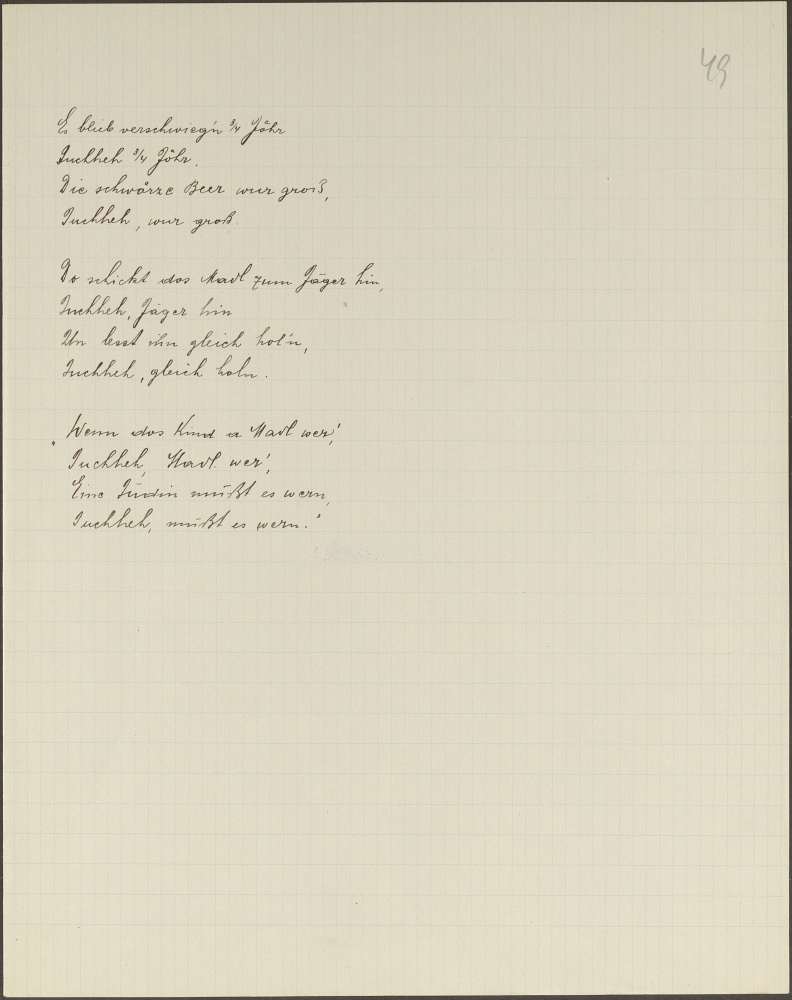 49
Es blieb verschwieg'n ¾ Jåhr
Juchheh ¾ Jåhr.
Die schwårze Beer wur groß,
Juchheh, wur groß.
Do schickt dos Madl zum Jäger hin,
Juchheh, Jäger hin
Un lesst ihn gleich hol'n,
Juchheh, gleich holn.
„Wenn dos Kind a Madl wer',
Juchheh, Madl wer',
Eine Jüdin müßt es wern,
Juchheh, müßt es wern."